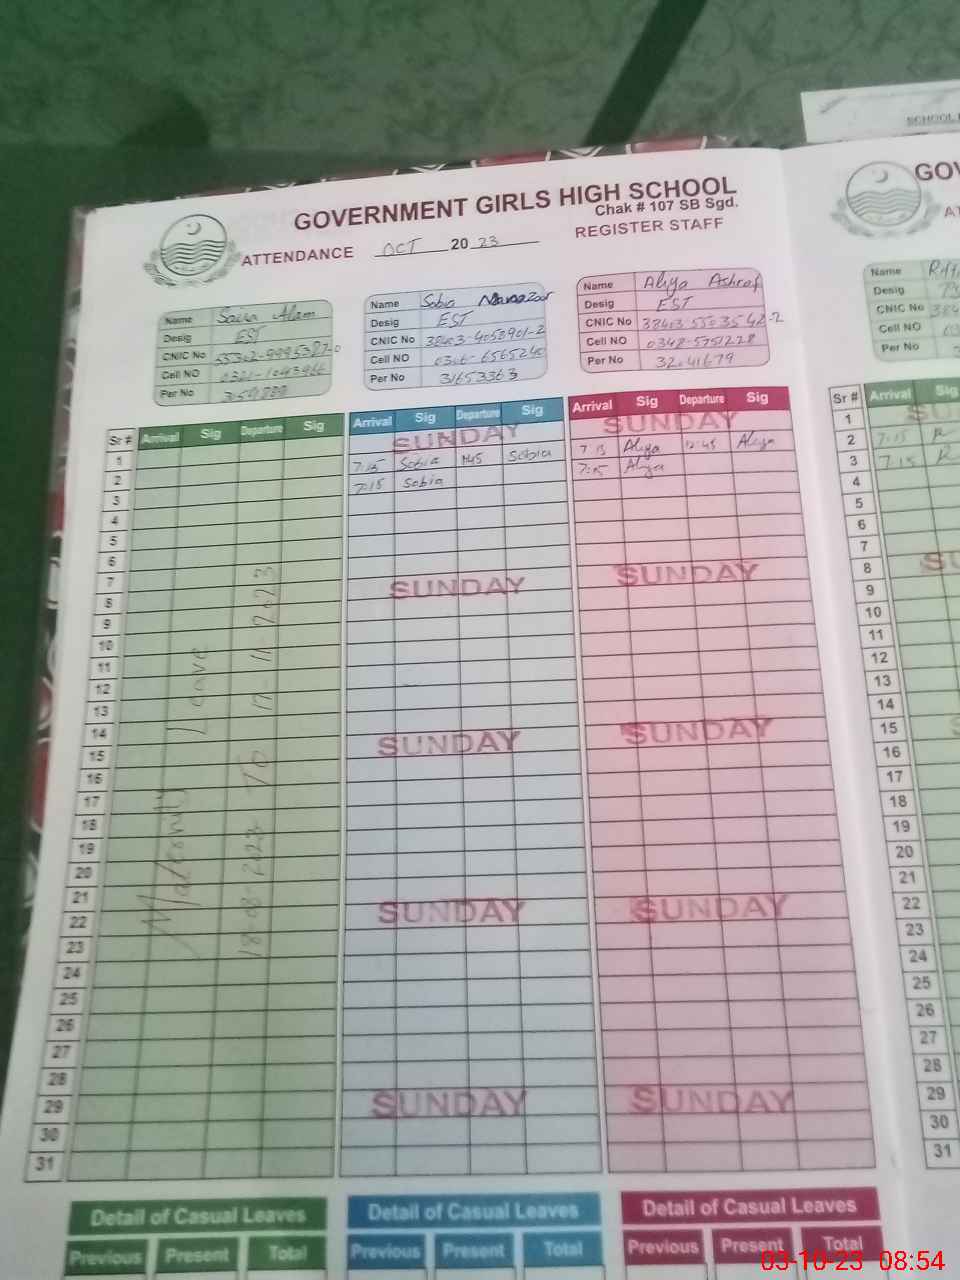 SCHOOL
GOVERNMENT GIRLS HIGH SCHOOL
Chak # 107 SB Sgd.
ATTENDANCE OCT 2023 REGISTER STAFF
Name Alam
Desig EST
CNIC No
Cell NO
Per No
Name Sobia
Desig EST
CNIC No 38403-4058901-2
Cell NO 0306-6565240
Per No 31653363
Name Aliya Ashraf
Desig EST
CNIC No 38403-5503542-2
Cell NO 0348-5751228
Per No 32041679
Sr # Arrival Sig Departure Sig
Arrival Sig Departure Sig
Arrival Sig Departure Sig
1
2
3
4
5
6
7
8
9
10
11
12
13
14
15
16
17
18
19
20
21
22
23
24
25
26
27
28
29
30
31
Maternity Leave
18-08-2023 To 17-11-2023
SUNDAY
7:15 Sobia 1:45 Sobia
7:15 Sobia
SUNDAY
SUNDAY
SUNDAY
SUNDAY
SUNDAY
7:15 Aliya 12:45 Aliya
7:15 Aliya
SUNDAY
SUNDAY
SUNDAY
SUNDAY
Detail of Casual Leaves
Previous Present Total
Detail of Casual Leaves
Previous Present Total
Detail of Casual Leaves
Previous Present Total
Name
Desig
CNIC No
Cell NO
Per No
Sr # Arrival Sig
1
2 7:15
3 7:15
4
5
6
7
8
9
10
11
12
13
14
15
16
17
18
19
20
21
22
23
24
25
26
27
28
29
30
31
03-10-23 08:54